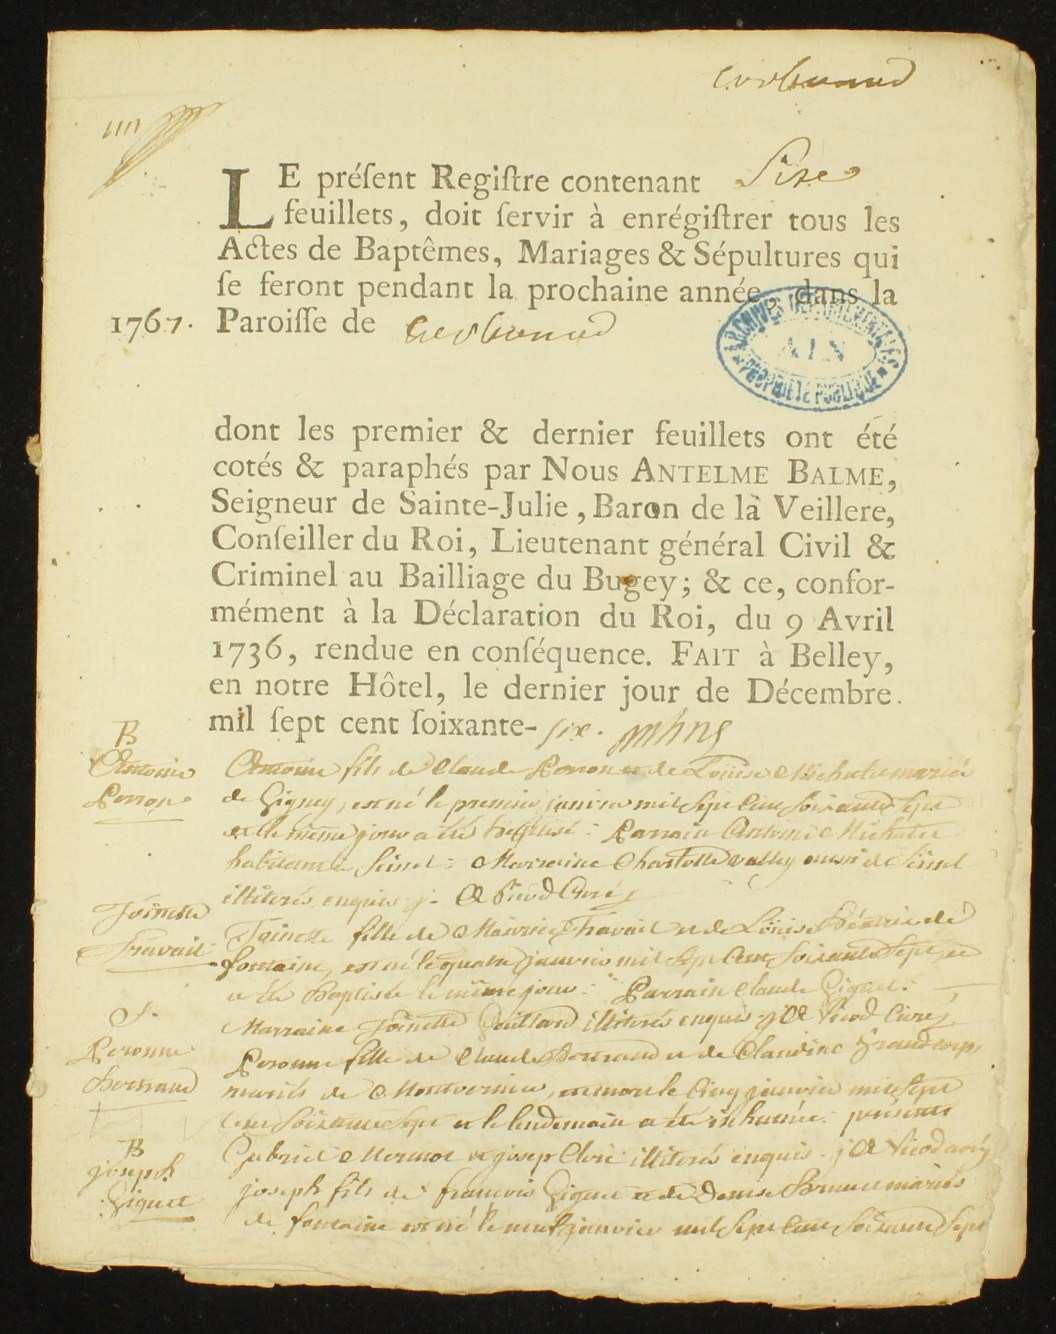 Corbonod
LE préſent Regiſtre contenant Size
feuillets, doit ſervir à enrégiſtrer tous les
Actes de Baptêmes, Mariages & Sépultures qui
ſe feront pendant la prochaine année, dans la
1767. Paroiſſe de Corbonod
ARCHIVES DÉPARTEMENTALES
AIN
PROPRIÉTÉ PUBLIQUE
dont les premier & dernier feuillets ont été
cotés & paraphés par NOUS ANTELME BALME,
Seigneur de Sainte-Julie, Baron de là Veillere,
Conſeiller du Roi, Lieutenant général Civil &
Criminel au Bailliage du Bugey; & ce, confor-
mément à la Déclaration du Roi, du 9 Avril
1736, rendue en conſéquence. FAIT à Belley,
en notre Hôtel, le dernier jour de Décembre
mil ſept cent ſoixante-six.
B
Antoine
Perron
Antoine fils de Claude Perron et de Louise Michatre mariés
de Gigney, est né le premier janvier mil sept cent soixante sept
et le même jour a été baptisé: Parrain Antoine Michatre
habitant à Seissel: Marraine Charlotte Valley aussi de Seissel
illiterés enquis
Toinette
Travail
Toinette fille de Maurice Travail et de Louise de
fontaine, est né le quatre janvier mil sept cent soixante sept et
a été Baptisée le même jour: Parrain Claude Giguet.
Marraine Toinette illiterés enquis Curé
S.
Peronne
Bertrand
Peronne fille de Claude Bertrand et de Claudine Grandcorps
mariés de, est morte le cinq janvier mil sept
cent soixante sept et le lendemain a été inhumée: présents
Gabriel Mermet et josep illiterés enquis
B
joseph
Giguet
joseph fils de francois Giguet et de Denise mariés
de fontaine est né le neuf janvier mil sept cent soixante sept